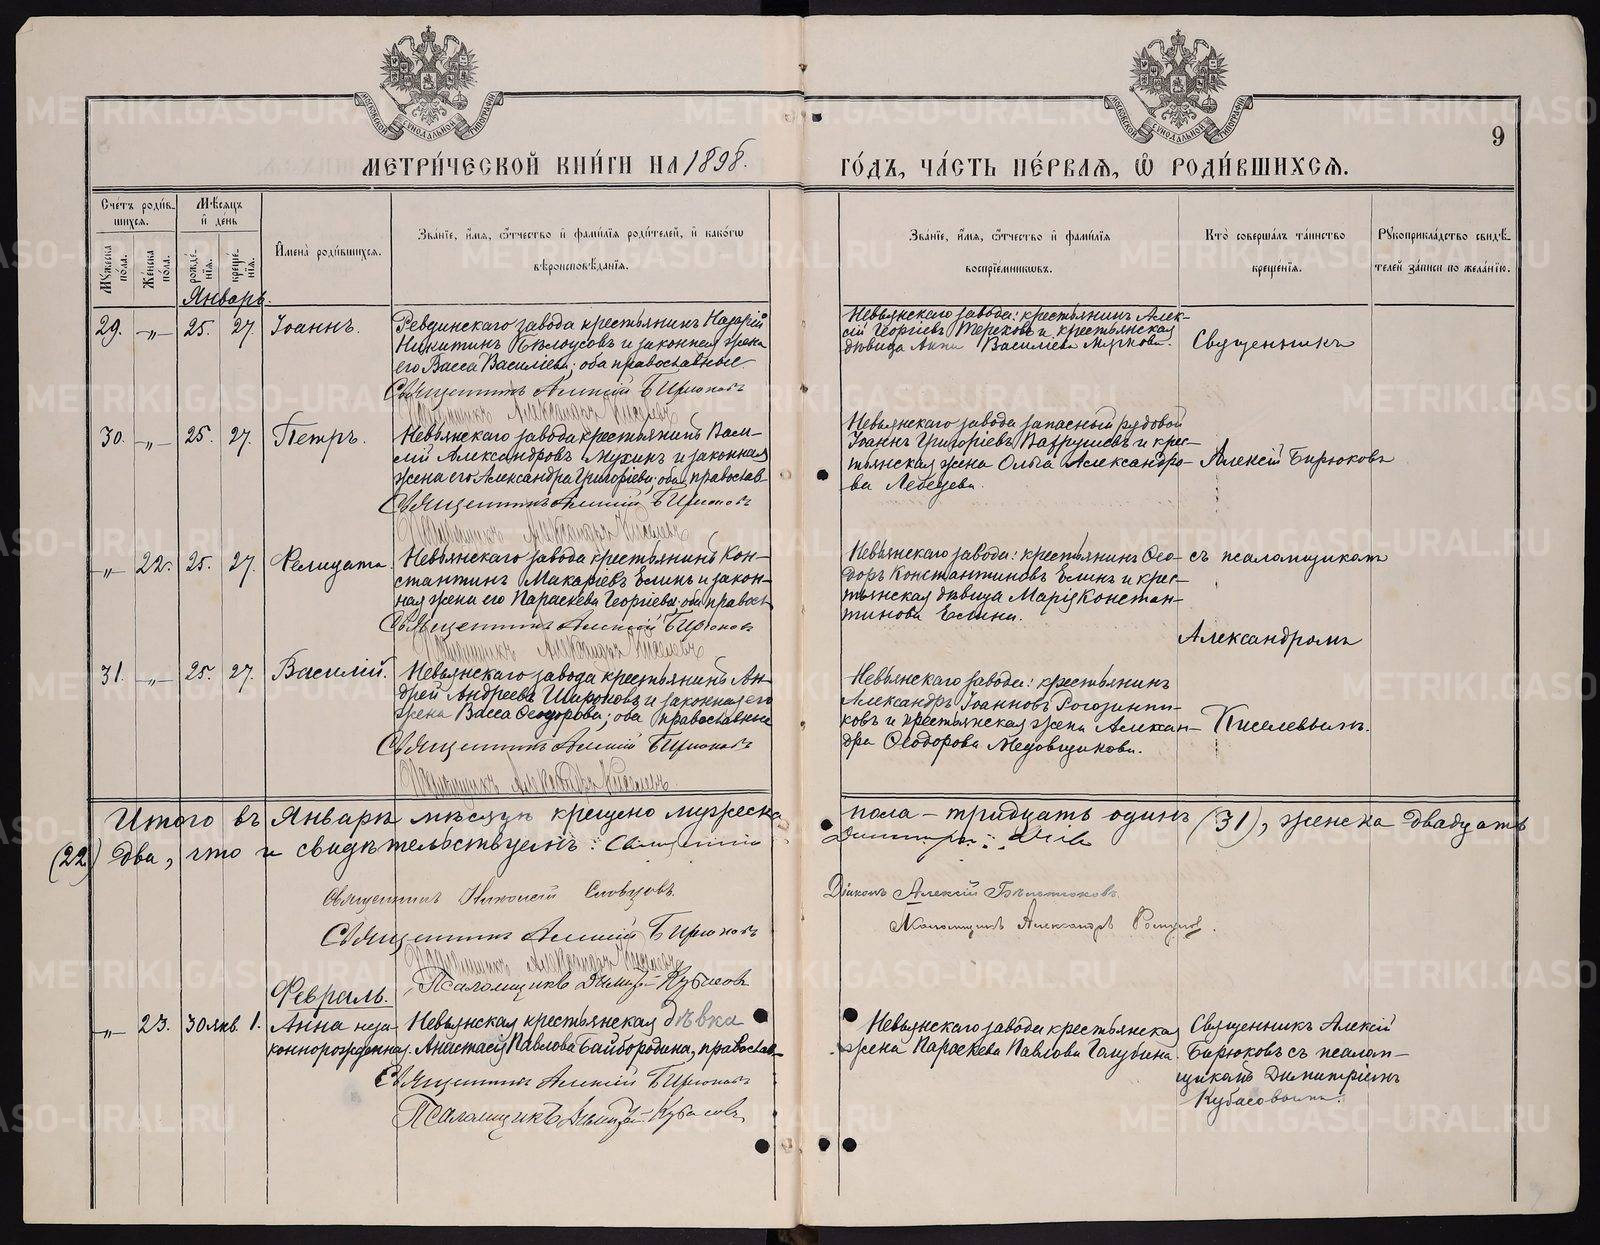 МЕТРИ́ЧЕСКОЙ КНИ́ГИ НА 1898.
ГО́ДЪ, ЧА́СТЬ ПЕ́РВАѦ, Ѡ҆ РОДИ́ВШИХСѦ.
9
Сче́тъ роди́в-
шихсѧ.
Мѣ́сѧцъ
и҆ де́нь
Мꙋ́жеска
по́ла.
Же́нска
по́ла.
рожде́-
нїѧ.
креще́-
нїѧ.
И҆мена̀ роди́вшихсѧ.
Зва́нїе, и҆́мѧ, ѻ҆́тчество и҆ фами́лїѧ роди́телей, и҆ како́гѡ
вѣроисповѣ́данїѧ.
Зва́нїе, и҆́мѧ, ѻ҆́тчество и҆ фами́лїѧ
воспрїе́мниковъ.
Кто̀ соверша́лъ та́инство
креще́нїѧ.
Рꙋкоприкла́дство свидѣ́-
телей за́писи по жела́нїю.
Январь.
29. -„- 25. 27. Іоаннъ.
Ревдинскаго завода крестьянинъ Назарій
Никитинъ Бѣлоусовъ и законная жена
его Васса Васильева; оба православные.
Священникъ Алексій Бирюковъ
Псаломщикъ Александръ Киселевъ
Невьянскаго завода: крестьянинъ Алек-
сій Георгіевъ Тереховъ и крестьянская
дѣвица Анна Васильева
Священникъ
30. -„- 25. 27. Петръ.
Невьянскаго завода крестьянинъ Васи-
лій Александровъ Мухинъ и законная
жена его Александра Григоріева; оба православ-
Священникъ Алексій Бирюковъ
Псаломщикъ Александръ Киселевъ
Невьянскаго завода запасный рядовой
Іоаннъ Григоріевъ Вахрушевъ и крес-
тьянская жена Ольга Александро-
ва Лебедева.
Алексій Бирюковъ
-„- 22. 25. 27. Фелицата.
Невьянскаго завода крестьянинъ Кон-
стантинъ Макаріевъ Елинъ и закон-
ная жена его Параскева Георгіева; оба правосл
Священникъ Алексій Бирюковъ
Псаломщикъ Александръ Киселевъ
Невьянскаго завода: крестьянинъ Ѳео-
доръ Константиновъ Елинъ и крес-
тьянская дѣвица Марія Констан-
тинова Елина.
съ псаломщикомъ
Александромъ
31. -„- 25. 27. Василій.
Невьянскаго завода крестьянинъ Ан-
дрей Андреевъ Широковъ и законная его
жена Васса Ѳеодорова; оба православные
Священникъ Алексій Бирюковъ
Псаломщикъ Александръ Киселевъ
Невьянскаго завода: крестьянинъ
Александръ Іоанновъ
ковъ и крестьянская жена Алексан-
дра Ѳеодорова Медовщикова.
Киселевымъ.
Итого въ Январѣ мѣсяцѣ крещено мужеска пола – тридцать одинъ (31), женска двадцать
(22) два, что и свидѣтельствуемъ: Священникъ
Священникъ Словцовъ
Діаконъ Алексій
Священникъ Алексій Бирюковъ
Псаломщикъ Александръ
Псаломщикъ Александръ Киселевъ
Псаломщикъ Димитрій Кубасовъ
Февраль.
-„- 23. 30 янв. 1. Анна неза-
коннорожденная.
Невьянская крестьянская дѣвка
Анастасія Павлова Байбородина, православ-
Священникъ Алексій Бирюковъ
Псаломщикъ Димитрій Кубасовъ
Невьянскаго завода крестьянская
жена Параскева Павлова Голубина.
Священникъ Алексій
Бирюковъ съ псалом-
щикомъ Димитріемъ
Кубасовымъ.
METRIKI.GASO-URAL.RU